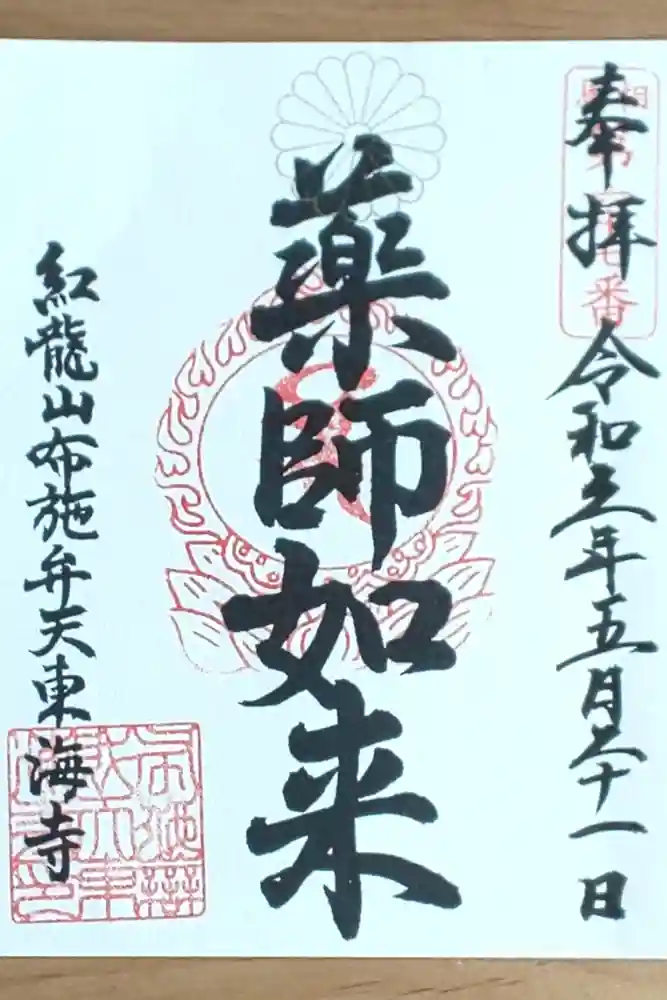 奉拝 令和元年五月二十一日
薬師如来
紅龍山布施弁天東海寺